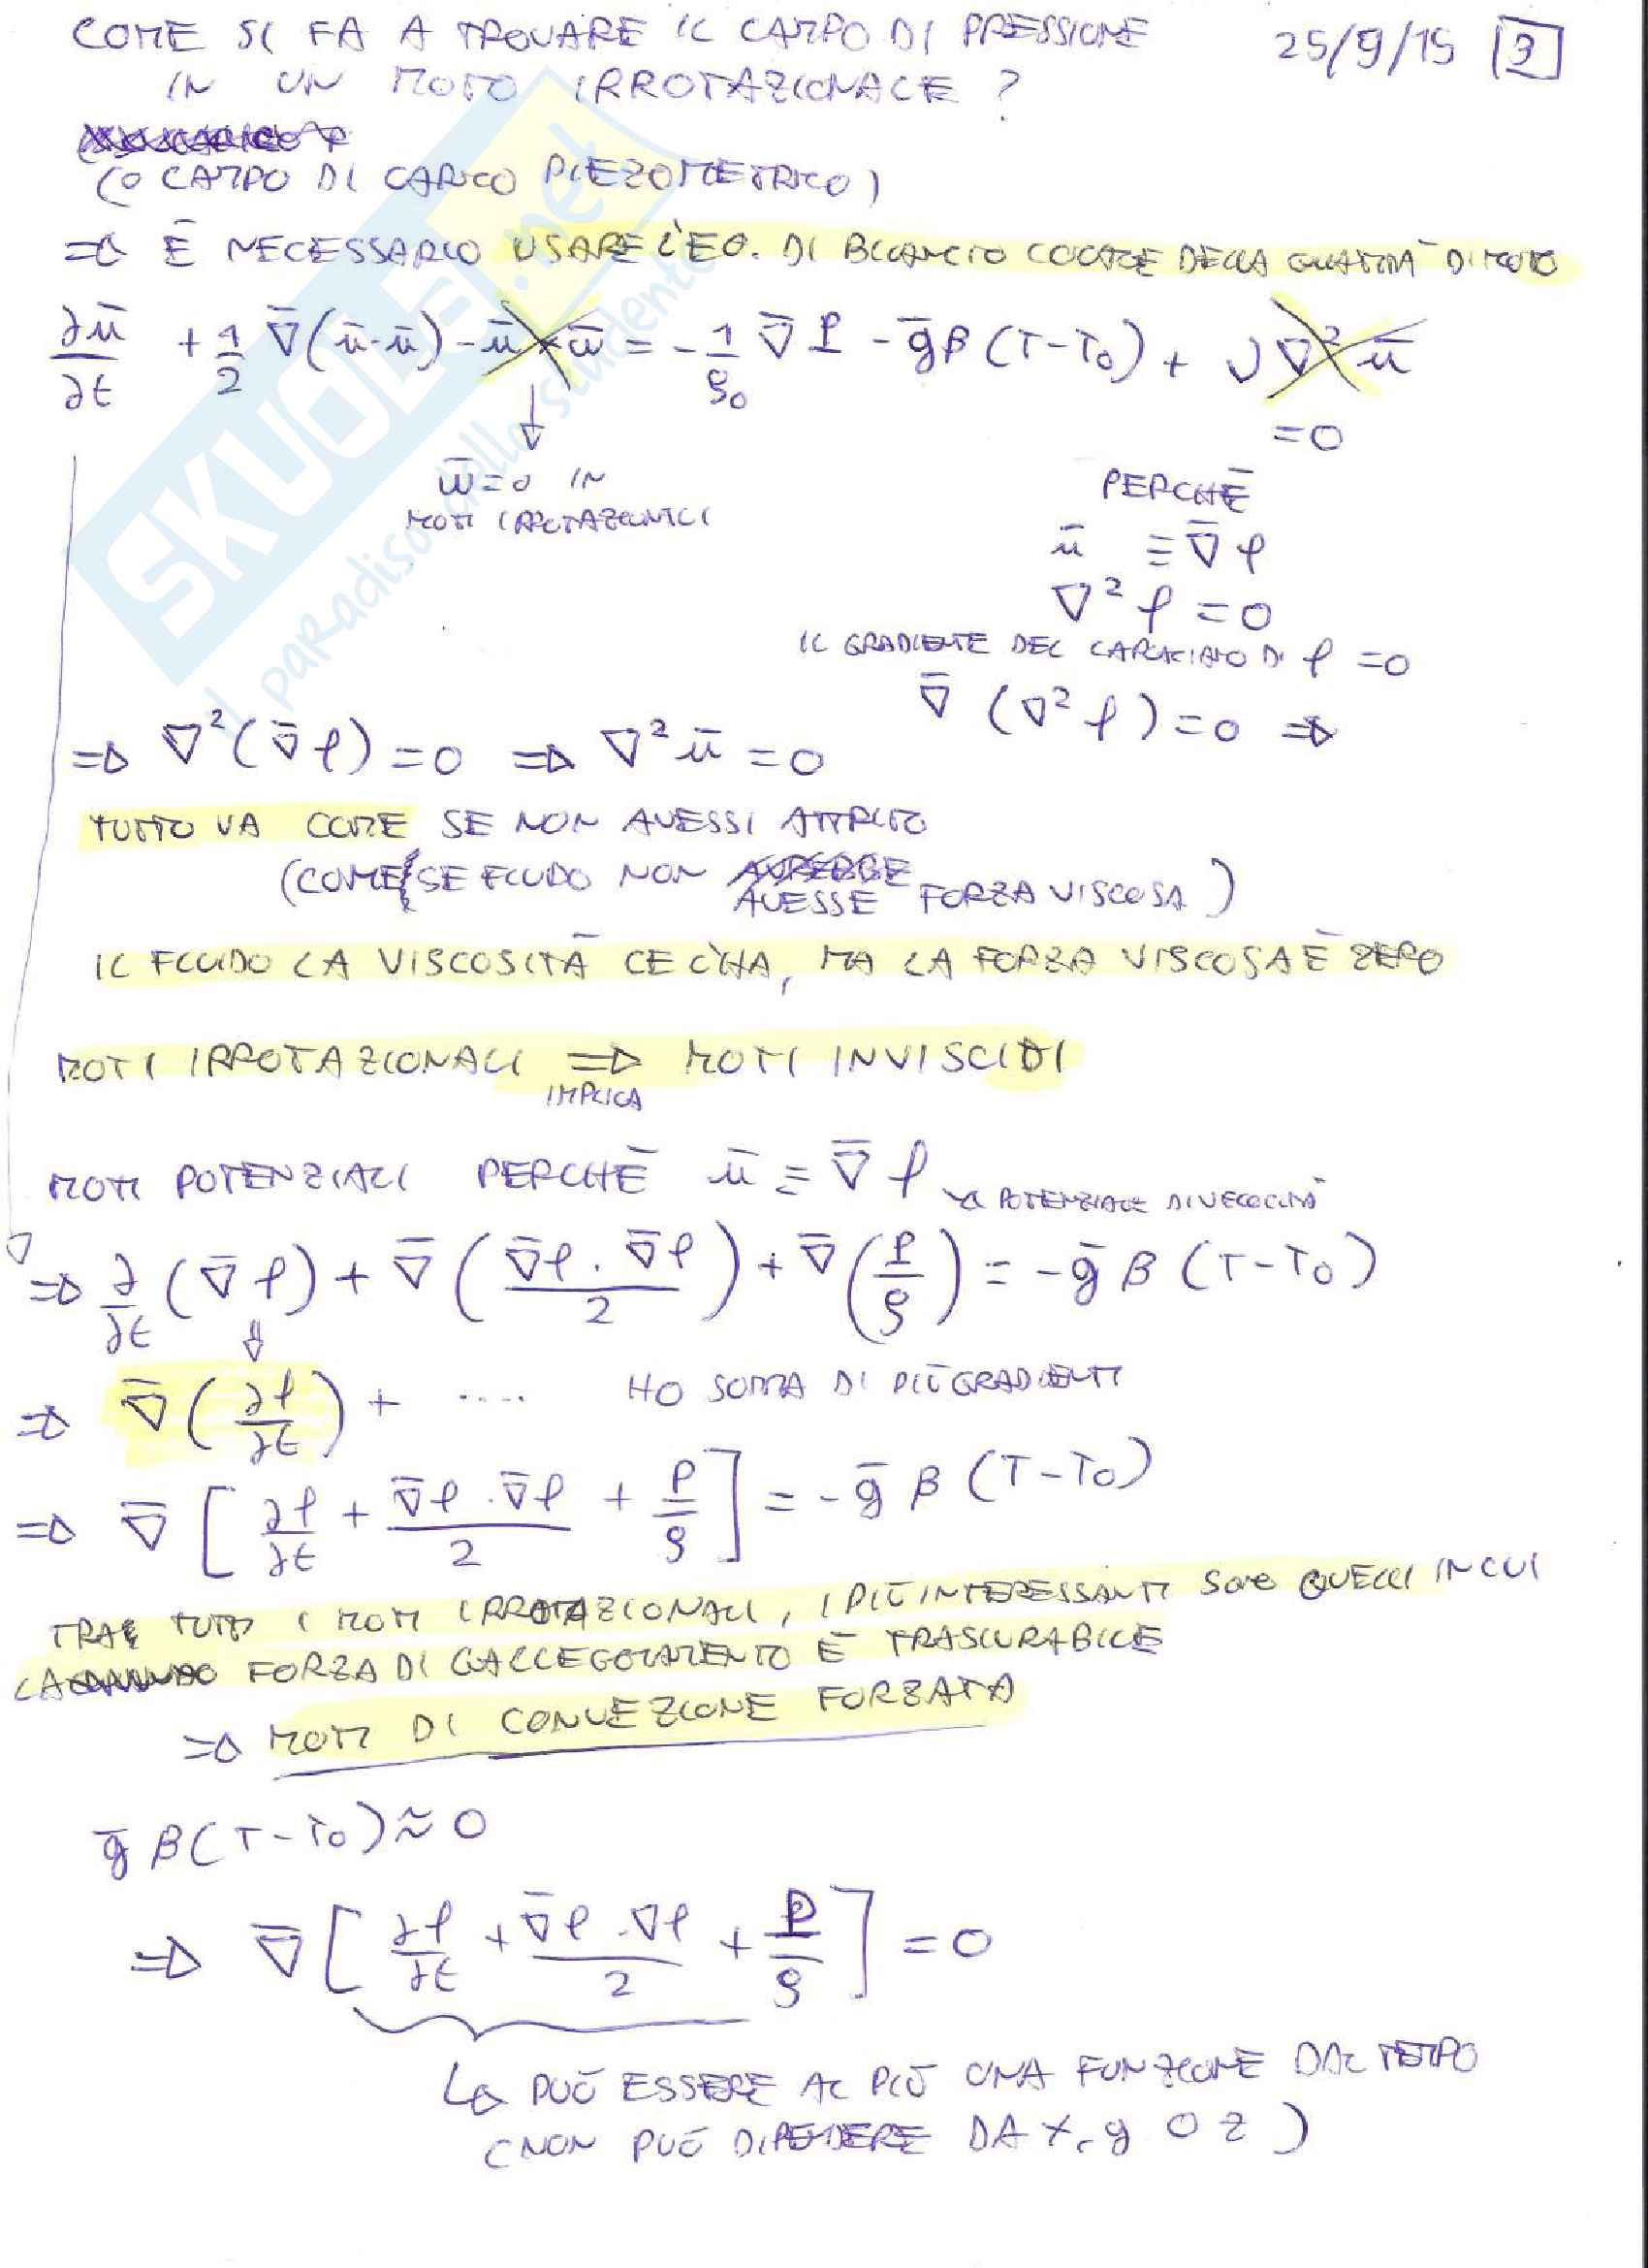 COME SI FA A TROVARE IL CAMPO DI PRESSIONE 25/9/15 3
IN UN MOTO IRROTAZIONALE ?
(O CAMPO DI CARICO PIEZOMETRICO)
⇒ È NECESSARIO USARE L'EQ. DI BILANCIO LOCALE DELLA QUANTITÀ DI MOTO
∂ū/∂t + 1/2 ∇̄(ū·ū) - ū×ω̄ = -1/ρ₀ ∇̄P - ḡβ(T-T₀) + ν∇²ū
=0
ω̄=0 IN
MOTI IRROTAZIONALI
PERCHÈ
ū ≡ ∇̄φ
∇²φ =0
IL GRADIENTE DEL LAPLACIANO DI φ =0
∇̄(∇²φ)=0 ⇒
⇒ ∇²(∇̄φ)=0 ⇒ ∇²ū=0
TUTTO VA COME SE NON AVESSI ATTRITO
(COME SE FLUIDO NON AVESSE FORZA VISCOSA)
IL FLUIDO LA VISCOSITÀ CE L'HA, MA LA FORZA VISCOSA È ZERO
MOTI IRROTAZIONALI ⇒ MOTI INVISCIDI
IMPLICA
MOTI POTENZIALI PERCHÈ ū ≡ ∇̄φ → POTENZIALE DI VELOCITÀ
⇒ ∂/∂t (∇̄φ) + ∇̄(∇̄φ·∇̄φ/2) + ∇̄(P/ρ) = -ḡβ(T-T₀)
⇒ ∇̄(∂φ/∂t) + .... HO SOMMA DI PIÙ GRADIENTI
⇒ ∇̄[∂φ/∂t + ∇̄φ·∇̄φ/2 + P/ρ] = -ḡβ(T-T₀)
TRA TUTTI I MOTI IRROTAZIONALI, I PIÙ INTERESSANTI SONO QUELLI IN CUI
LA FORZA DI GALLEGGIAMENTO È TRASCURABILE
⇒ MOTI DI CONVEZIONE FORZATA
ḡβ(T-T₀)≈0
⇒ ∇̄[∂φ/∂t + ∇̄φ·∇φ/2 + P/ρ] =0
↳ PUÒ ESSERE AL PIÙ UNA FUNZIONE DAL TEMPO
(NON PUÒ DIPENDERE DA X, y O Z)
SKUOLA.net
il paradiso dello studente